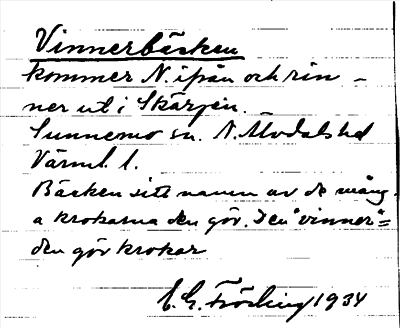 Vinnerbäcken
kommer N. ifrån och rin -
ner ut i Skärgen.
Sunnemo sn. N. Älvdals hd
Värml. l.
Bäcken sitt namn av de mång-
a krokarna den gör. Den "vinner" =
den gör krokar
E. G. Fröding 1934